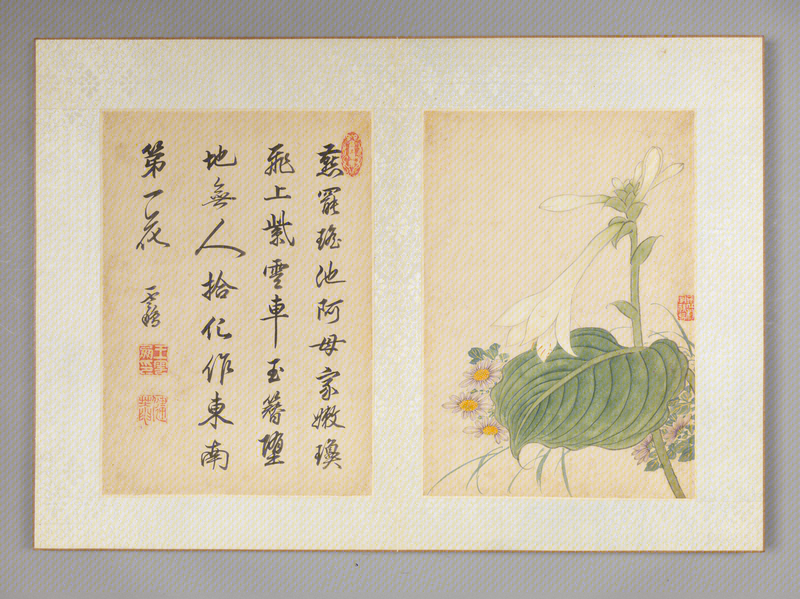 燕罷瑤池阿母家嫩瓊
飛上紫雲車玉簪墮
地無人拾化作東南
第一花